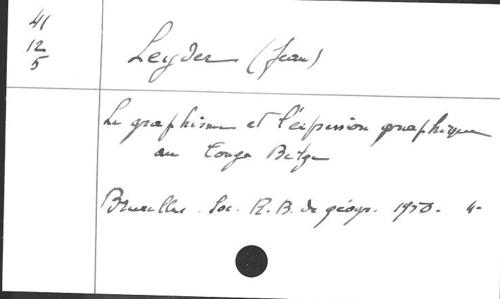 41
12
5
Leyder (Jean)
Le graphisme et l'expression graphique
au Congo Belge
Bruxelles. Soc. R. B. de géogr. 1950. 4-